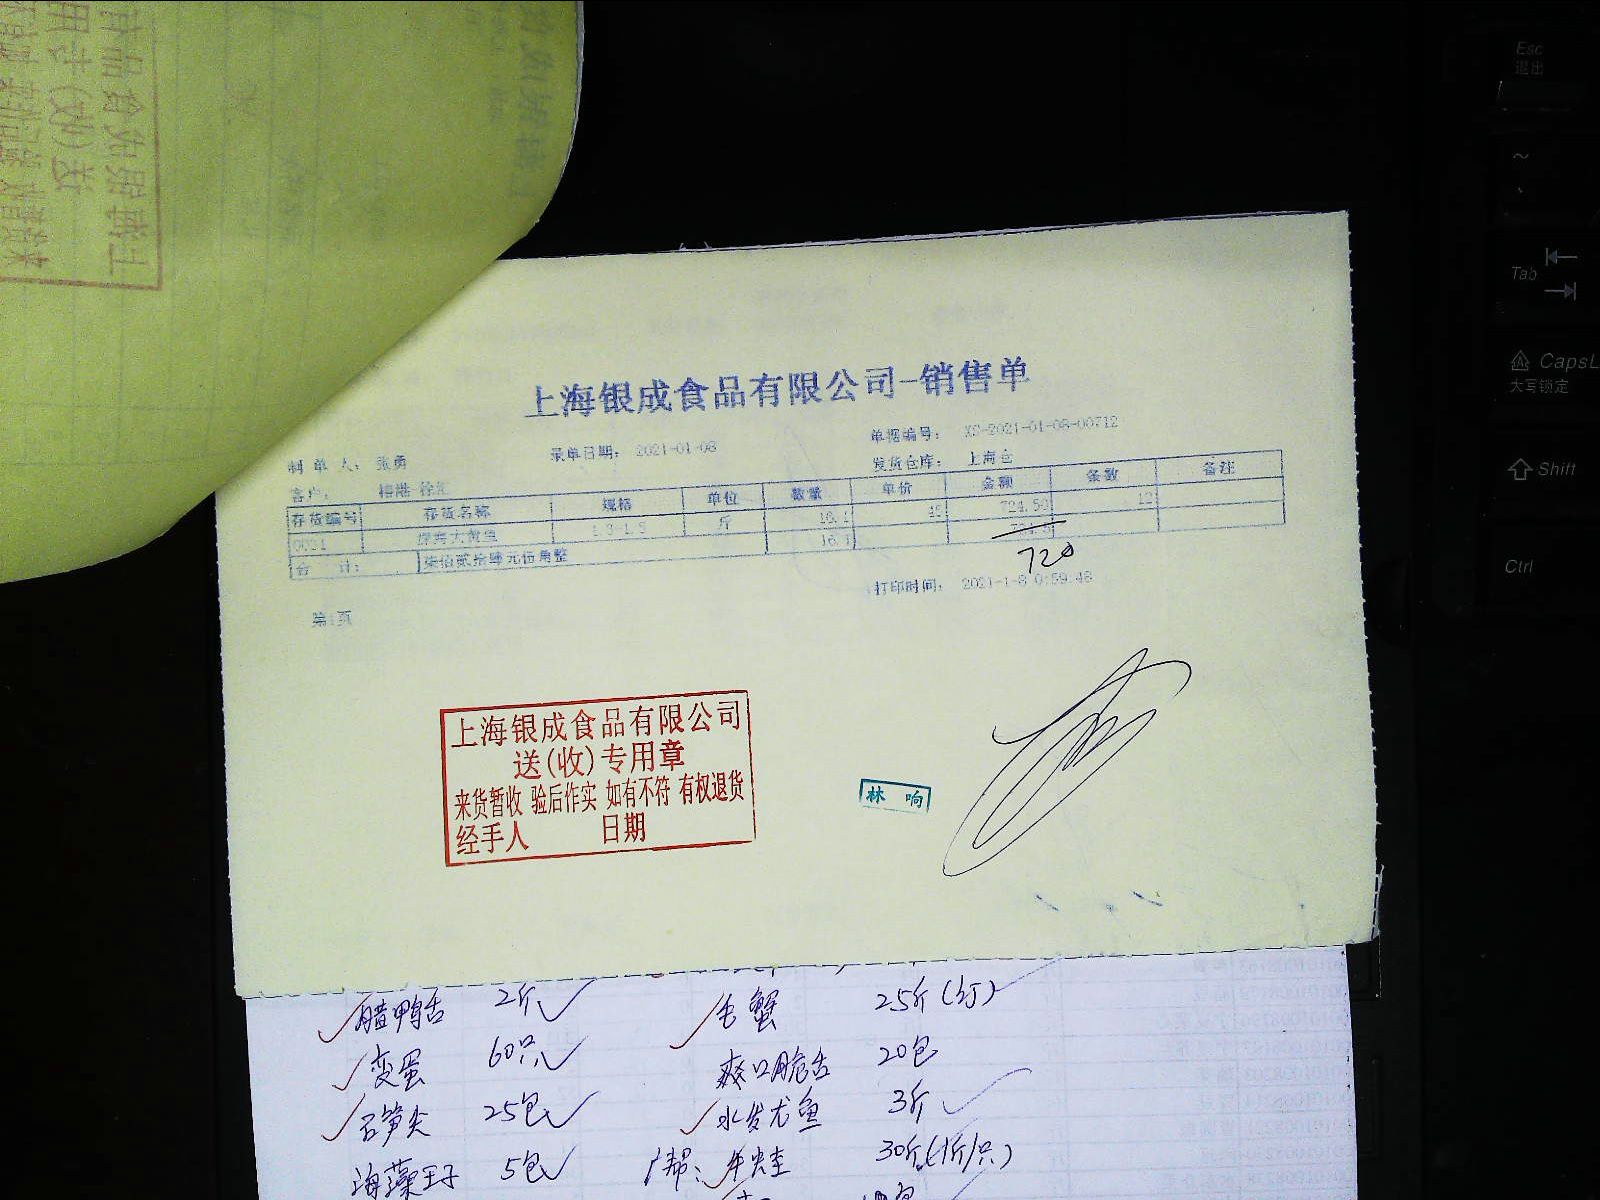 上海银成食品有限公司-销售单
制 单 人: 张勇 录单日期: 2021-01-08 单据编号: XS-2021-01-08-00712
客户: 徐汇 发货仓库: 上海仓
存货编号 存货名称 规格 单位 数量 单价 金额 条数 备注
大黄鱼 1.3-1.5 斤 16.1 45 724.50 12
合 计: 柒佰贰拾肆元伍角整 16.1 724.5
720
打印时间: 2021-1-8 0:59:48
第1页
上海银成食品有限公司
送(收)专用章
来货暂收 验后作实 如有不符 有权退货
经手人 日期
林 响
腊鸭舌 2斤 毛蟹 25斤
变蛋 60只 爽口脆舌 20包
石笋尖 25包 水发尤鱼 3斤
海藻王子 5包 牛蛙 30斤(1斤/只)
Esc
退出
~
Tab
CapsL
大写锁定
Shift
Ctrl